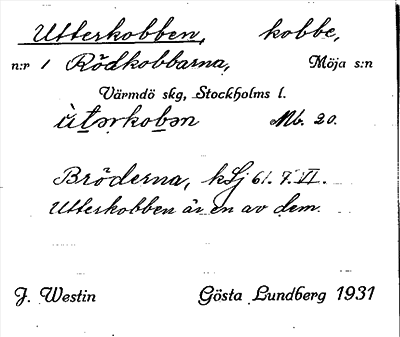 Utterkobben, kobbe,
n:r 1 Rödkobbarna, Möja s:n
Värmdö skg, Stockholms l.
ùtərkobən Mb. 20.
Bröderna, kSj 61. 7. VI.
Utterkobben är en av dem.
J. Westin Gösta Lundberg 1931